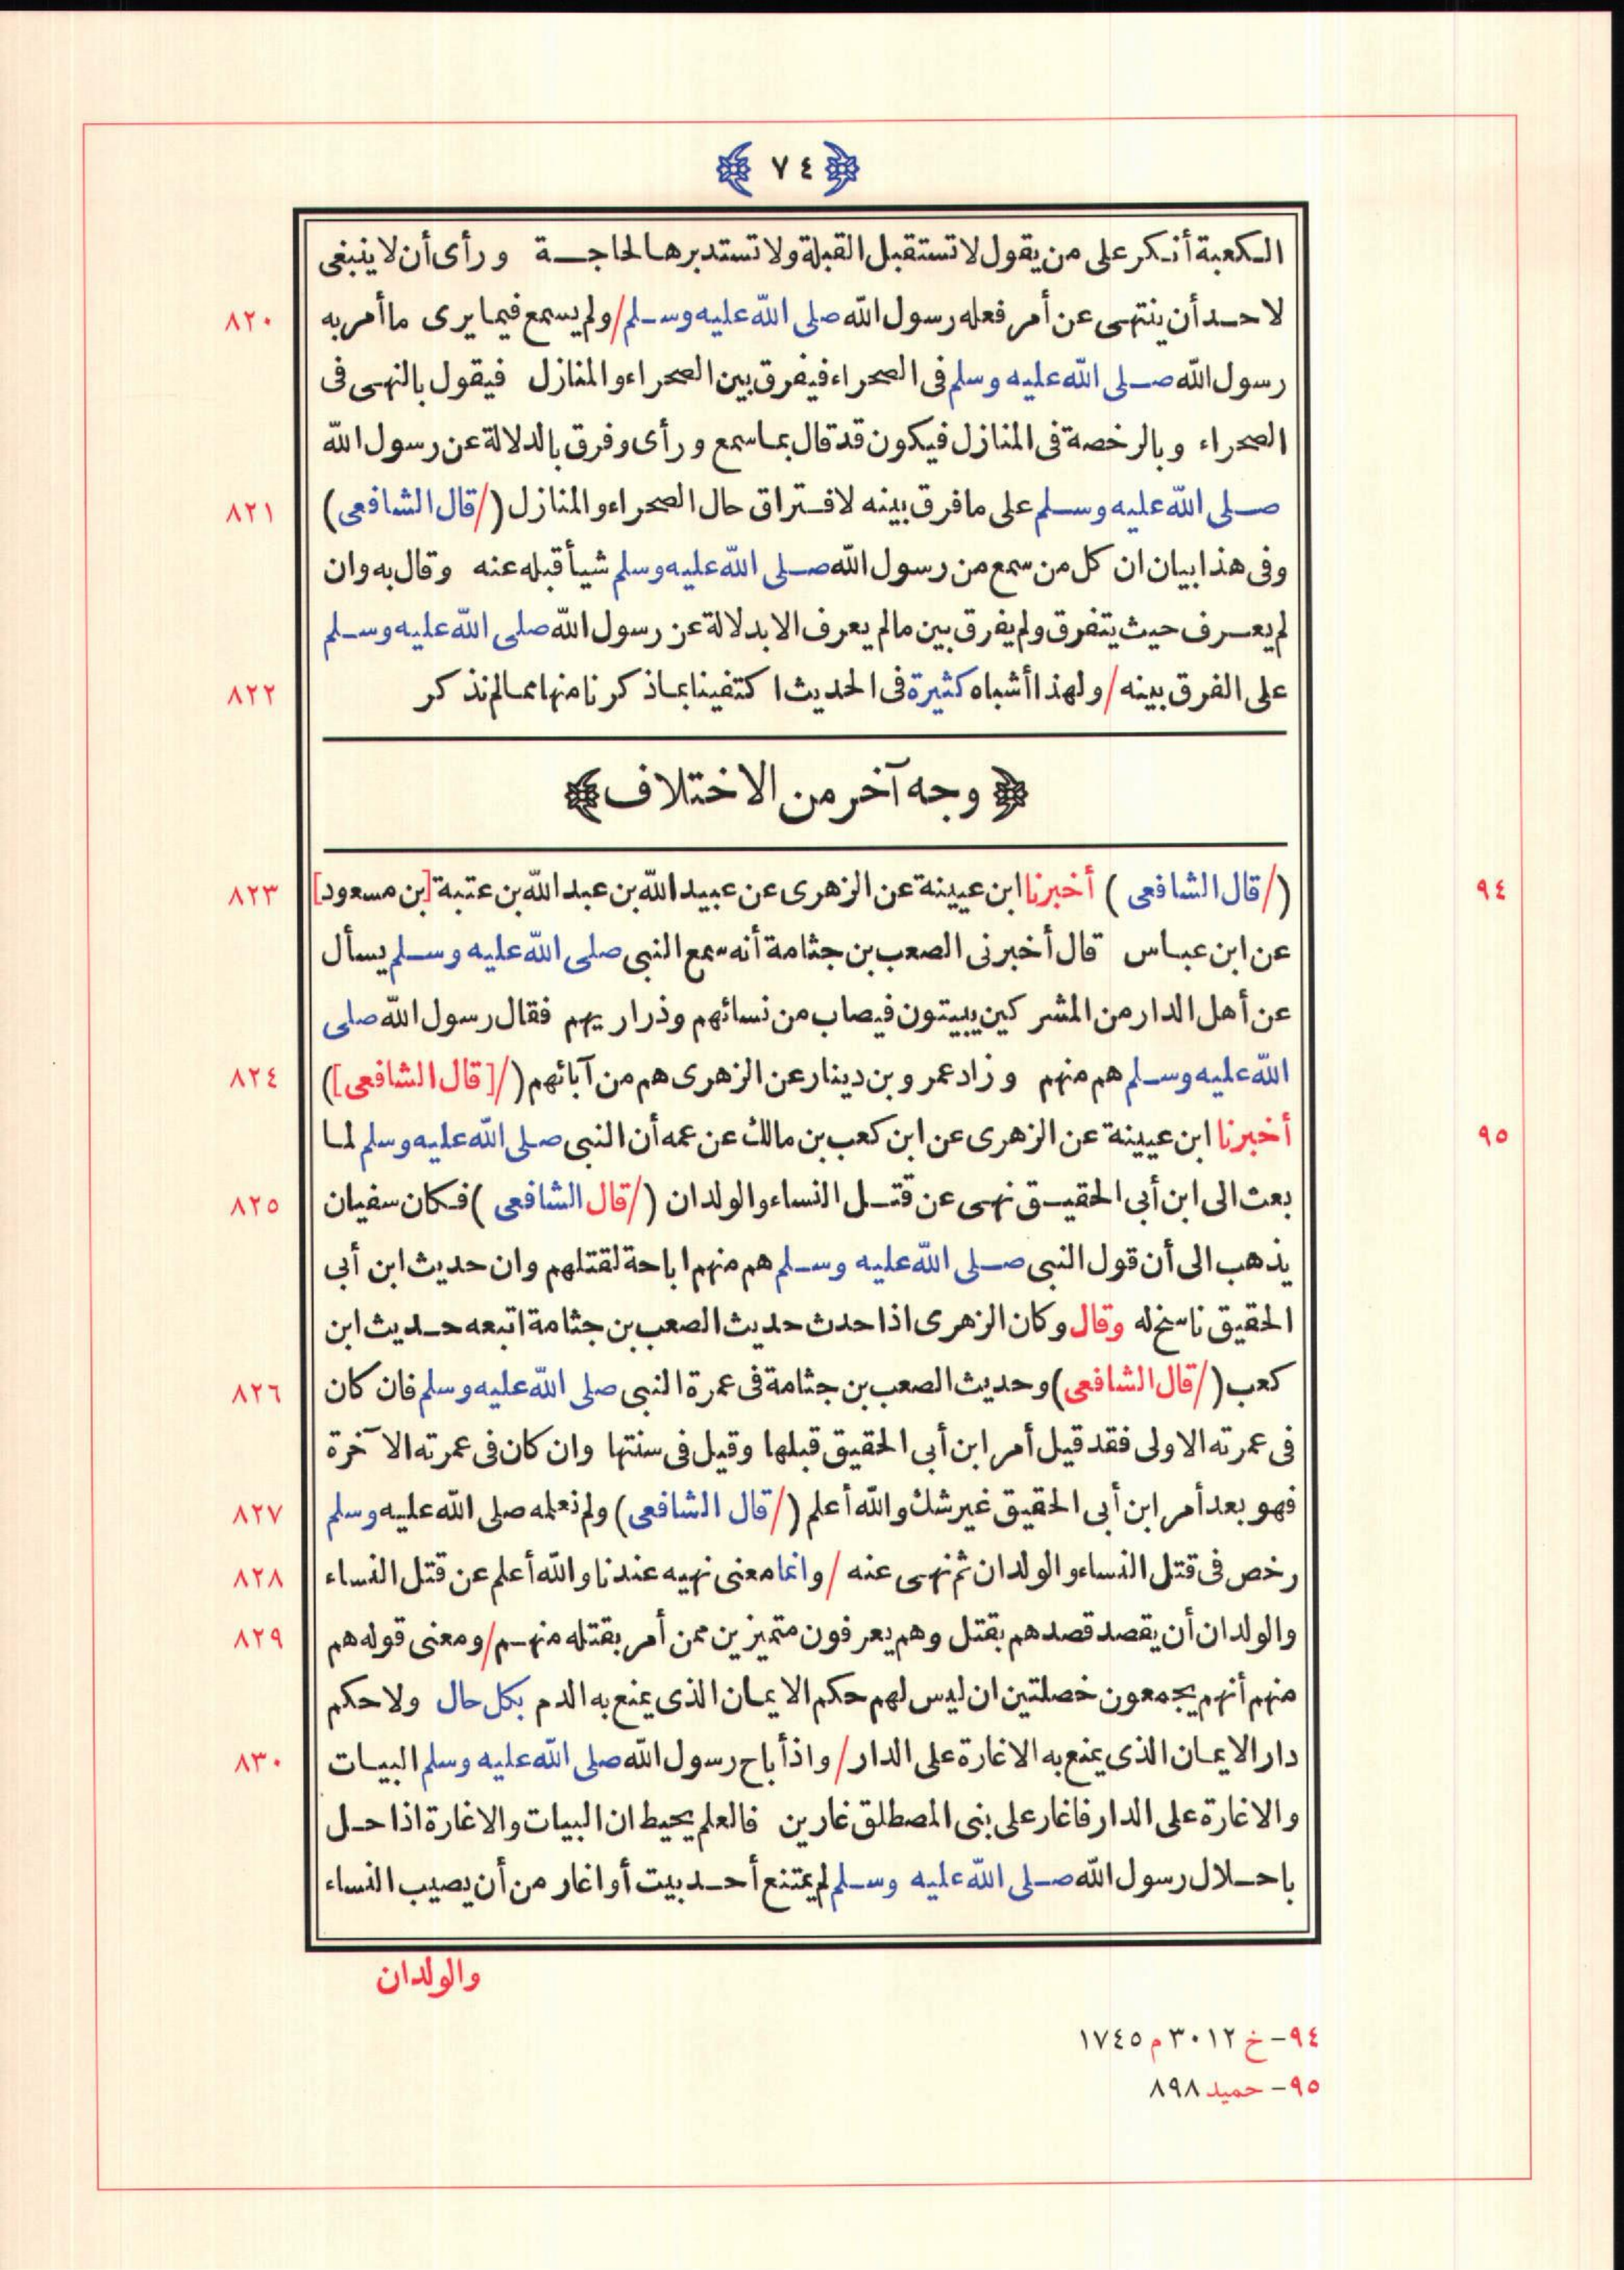 ﴿ ٧٤ ﴾
الكعبة أنكر على من يقول لا تستقبل القبلة ولا تستدبرها لحاجة ورأى أن لا ينبغى
لاحد أن ينتهى عن أمر فعله رسول الله صلى الله عليه وسلم/ ولم يسمع فيما يرى ما أمر به ٨٢٠
رسول الله صلى الله عليه وسلم فى الصحراء فيفرق بين الصحراء والمنازل فيقول بالنهى فى
الصحراء وبالرخصة فى المنازل فيكون قد قال بما سمع ورأى وفرق بالدلالة عن رسول الله
صلى الله عليه وسلم على ما فرق بينه لافتراق حال الصحراء والمنازل (/قال الشافعى) ٨٢١
وفى هذا بيان ان كل من سمع من رسول الله صلى الله عليه وسلم شيأ قبله عنه وقال به وان
لم يعرف حيث يتفرق ولم يفرق بين ما لم يعرف الا بدلالة عن رسول الله صلى الله عليه وسلم
على الفرق بينه/ ولهذا أشباه كثيرة فى الحديث اكتفينا بما ذكرنا منها مما لم نذكر ٨٢٢
﴿ وجه آخر من الاختلاف ﴾
٩٤ (/قال الشافعى) أخبرنا ابن عيينة عن الزهرى عن عبيد الله بن عبد الله بن عتبة [بن مسعود] ٨٢٣
عن ابن عباس قال أخبرنى الصعب بن جثامة أنه سمع النبى صلى الله عليه وسلم يسأل
عن أهل الدار من المشركين يبيتون فيصاب من نسائهم وذراريهم فقال رسول الله صلى
الله عليه وسلم هم منهم وزاد عمرو بن دينار عن الزهرى هم من آبائهم (/[قال الشافعى]) ٨٢٤
٩٥ أخبرنا ابن عيينة عن الزهرى عن ابن كعب بن مالك عن عمه أن النبى صلى الله عليه وسلم لما
بعث الى ابن أبى الحقيق نهى عن قتل النساء والولدان (/قال الشافعى) فكان سفيان ٨٢٥
يذهب الى أن قول النبى صلى الله عليه وسلم هم منهم اباحة لقتلهم وان حديث ابن أبى
الحقيق ناسخ له وقال وكان الزهرى اذا حدث حديث الصعب بن جثامة اتبعه حديث ابن
كعب (/قال الشافعى) وحديث الصعب بن جثامة فى عمرة النبى صلى الله عليه وسلم فان كان ٨٢٦
فى عمرته الاولى فقد قيل أمر ابن أبى الحقيق قبلها وقيل فى سنتها وان كان فى عمرته الآخرة
فهو بعد أمر ابن أبى الحقيق غير شك والله أعلم (/قال الشافعى) ولم نعلمه صلى الله عليه وسلم ٨٢٧
رخص فى قتل النساء والولدان ثم نهى عنه / وانما معنى نهيه عندنا والله أعلم عن قتل النساء ٨٢٨
والولدان أن يقصد قصدهم بقتل وهم يعرفون متميزين ممن أمر بقتله منهم/ ومعنى قوله هم ٨٢٩
منهم أنهم يجمعون خصلتين ان ليس لهم حكم الايمان الذى يمنع به الدم بكل حال ولا حكم
دار الايمان الذى يمنع به الاغارة على الدار/ واذ أباح رسول الله صلى الله عليه وسلم البيات ٨٣٠
والاغارة على الدار فاغار على بنى المصطلق غارين فالعلم يحيط ان البيات والاغارة اذا حل
باحلال رسول الله صلى الله عليه وسلم لم يمتنع أحد بيت أو اغار من أن يصيب النساء
والولدان
٩٤- خ ٣٠١٢ م ١٧٤٥
٩٥- حميد ٨٩٨